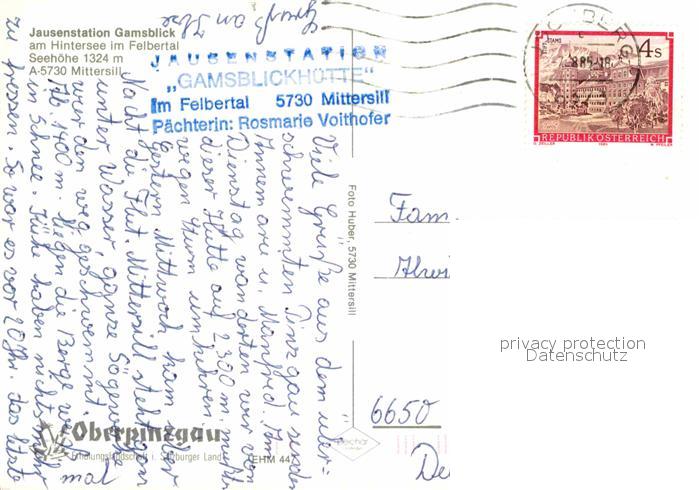 Jausenstation Gamsblick
am Hintersee im Felbertal
Seehöhe 1324 m
A-5730 Mittersill
JAUSENSTATION
„GAMSBLICKHÜTTE"
Im Felbertal 5730 Mittersill
Pächterin: Rosmarie Voithofer
4s
STAMS
REPUBLIK ÖSTERREICH
Viele Grüße aus dem über-
schwemmten Pinzgau senden
Annemarie u. Manfred. Am
Dienstag wanderten wir von
dieser Hütte auf 2300 m. mußten
wegen Sturm umkehren.
Gestern Mittwoch kam über
Nacht die Flut. Mittersill steht ganz
unter Wasser, ganze Sägewerke
werden weggeschwemmt.
Ab 1400 m. liegen die Berge
in Schnee. Kühe haben nichts mehr
zu fressen. So war es vor 20 Jhr. das letzte
mal
Foto Huber, 5730 Mittersill
Fam.
6650
De
privacy protection
Datenschutz
Oberpinzgau
Erholungslandschaft i. Salzburger Land
EHM 447